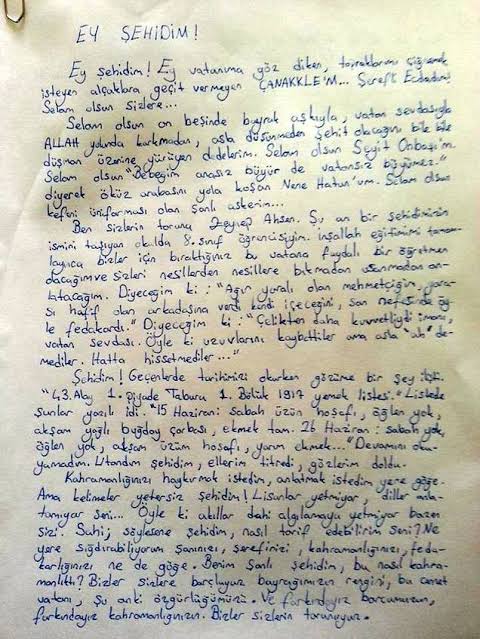 EY ŞEHİDİM!
Ey şehidim! Ey vatanıma göz diken, topraklarımı çiğnemek
isteyen alçaklara geçit vermeyen ÇANAKKLE'M... Şerefli Ecdadım!
Selam olsun sizlere...
Selam olsun on beşinde bayrak aşkıyla, vatan sevdasıyla
ALLAH yolunda korkmadan, asla düşünmeden şehit olacağını bile bile
düşman üzerine yürüyen dedelerim. Selam olsun Seyit Onbaşı'm.
Selam olsun "Bebeğim anasız büyür de vatansız büyümez."
diyerek öküz arabasını yola koşan Nene Hatun'um. Selam olsun
kefni üniforması olan şanlı askerim...
Ben sizlerin torunu Zeynep Ahsen. Şu an bir şehidimizin
ismini taşıyan okulda 8.sınıf öğrencisiyim. İnşallah eğitimimi tamam-
layınca bizler için bıraktığınız bu vatana faydalı bir öğretmen
olacağım ve sizleri nesillerden nesillere bıkmadan usanmadan an-
latacağım. Diyeceğim ki: "Ağır yaralı olan mehmetçiğim, yara-
sı hafif olan arkadaşına verdi kendi içeceğini, son nefesinde öy-
le fedakardı." Diyeceğim ki: "Çelikten daha kuvvetliydi imanı,
vatan sevdası. Öyle ki uzuvlarını kaybettiler ama asla "ah" de-
mediler. Hatta hissetmediler..."
Şehidim! Geçenlerde tarihimizi okurken gözüme bir şey ilişti.
"43.Alay 1. Piyade Taburu 1. Bölük 1917 yemek listesi." Listede
şunlar yazılı idi. "15 Haziran: sabah üzüm hoşafı, öğlen yok,
akşam yağlı buğday çorbası, ekmek tam. 26 Haziran: sabah yok,
öğlen yok, akşam üzüm hoşafı, yarım ekmek..." Devamını oku-
yamadım. Utandım şehidim, ellerim titredi, gözlerim doldu.
Kahramanlığınızı haykırmak istedim, anlatmak istedim yere göğe.
Ama kelimeler yetersiz şehidim! Lisanlar yetmiyor, diller anla-
tamıyor seni... Öyle ki akıllar dahi algılamaya yetmiyor bazen
sizi. Sahi, söylesene şehidim, nasıl tarif edebilirim seni? Ne
yere sığdırabiliyorum şanınızı, şerefinizi, kahramanlığınızı, feda-
karlığınızı ne de göğe. Benim Şanlı şehidim, bu nasıl kahra-
manlıktı? Bizler sizlere borçluyuz bayrağımızın rengini, bu cennet
vatanı, şu anki özgürlüğümüzü. Ve farkındayız borcumuzun,
farkındayız kahramanlığınızın. Bizler sizlerin torunuyuz.